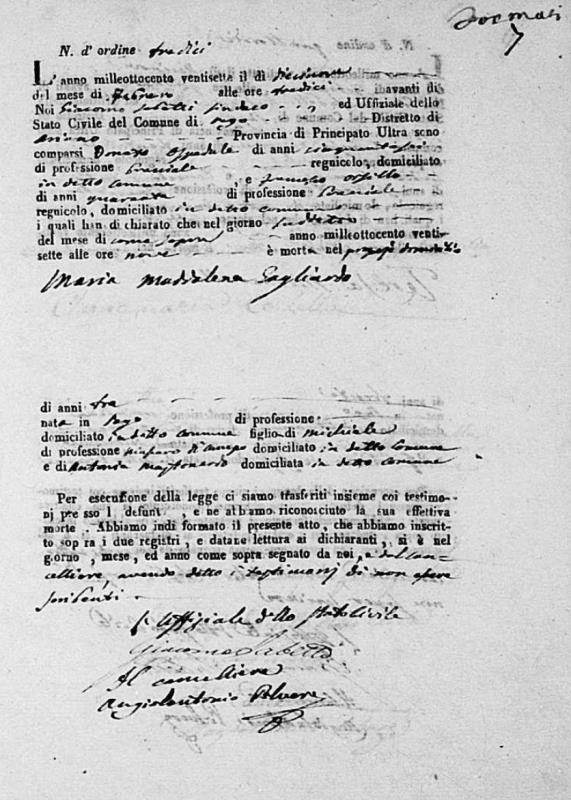 7
N. d' ordine tredici
L' anno milleottocento ventisette il di diecinove
del mese di Febraro alle ore tredici avanti di
Noi Giacomo Sabetti Sindaco ed Uffiziale dello
Stato Civile del Comune di Zugo Distretto di
Ariano Provincia di Principato Ultra sono
comparsi Donato di anni cinquantasei
di professione Bracciale regnicolo, domiciliato
in detto comune, e Francesco
di anni quaranta di professione Bracciale
regnicolo, domiciliato in detto comune
i quali han dichiarato che nel giorno suddetto
del mese di come sopra anno milleottocento venti-
sette alle ore nove è morta nel proprio domicilio
Maria Maddalena Gagliardo
di anni tre
nata in Zugo di professione
domiciliato in detto comune figlio di Michele
di professione domiciliato in detto Comune
e di Antonia domiciliata in detto comune
Per esecuzione della legge ci siamo trasferiti insieme coi testimo-
nj presso l defunt , e ne abbamo riconosciuto la sua effettiva
morte . Abbiamo indi formato il presente atto, che abbiamo inscrit-
to sopra i due registri, e datane lettura ai dichiaranti, si è nel
giorno, mese, ed anno come sopra segnato da noi, e dal can-
celliere, avendo detto i testimonj di non sapere
scrivere
L'Uffiziale dello Stato Civile
Giacomo Sabetti
Il cancelliere
Angiolantonio Polvere